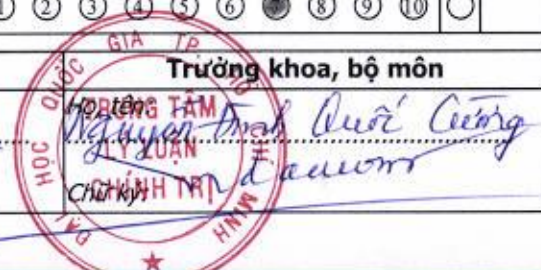 5 6 8 9 10
Trưởng khoa, bộ môn
Họ, tên: Nguyễn Đình Quốc Cường
Chữ ký:
ĐẠI HỌC QUỐC GIA TP. HỒ CHÍ MINH
TRUNG TÂM
LÝ LUẬN
CHÍNH TRỊ